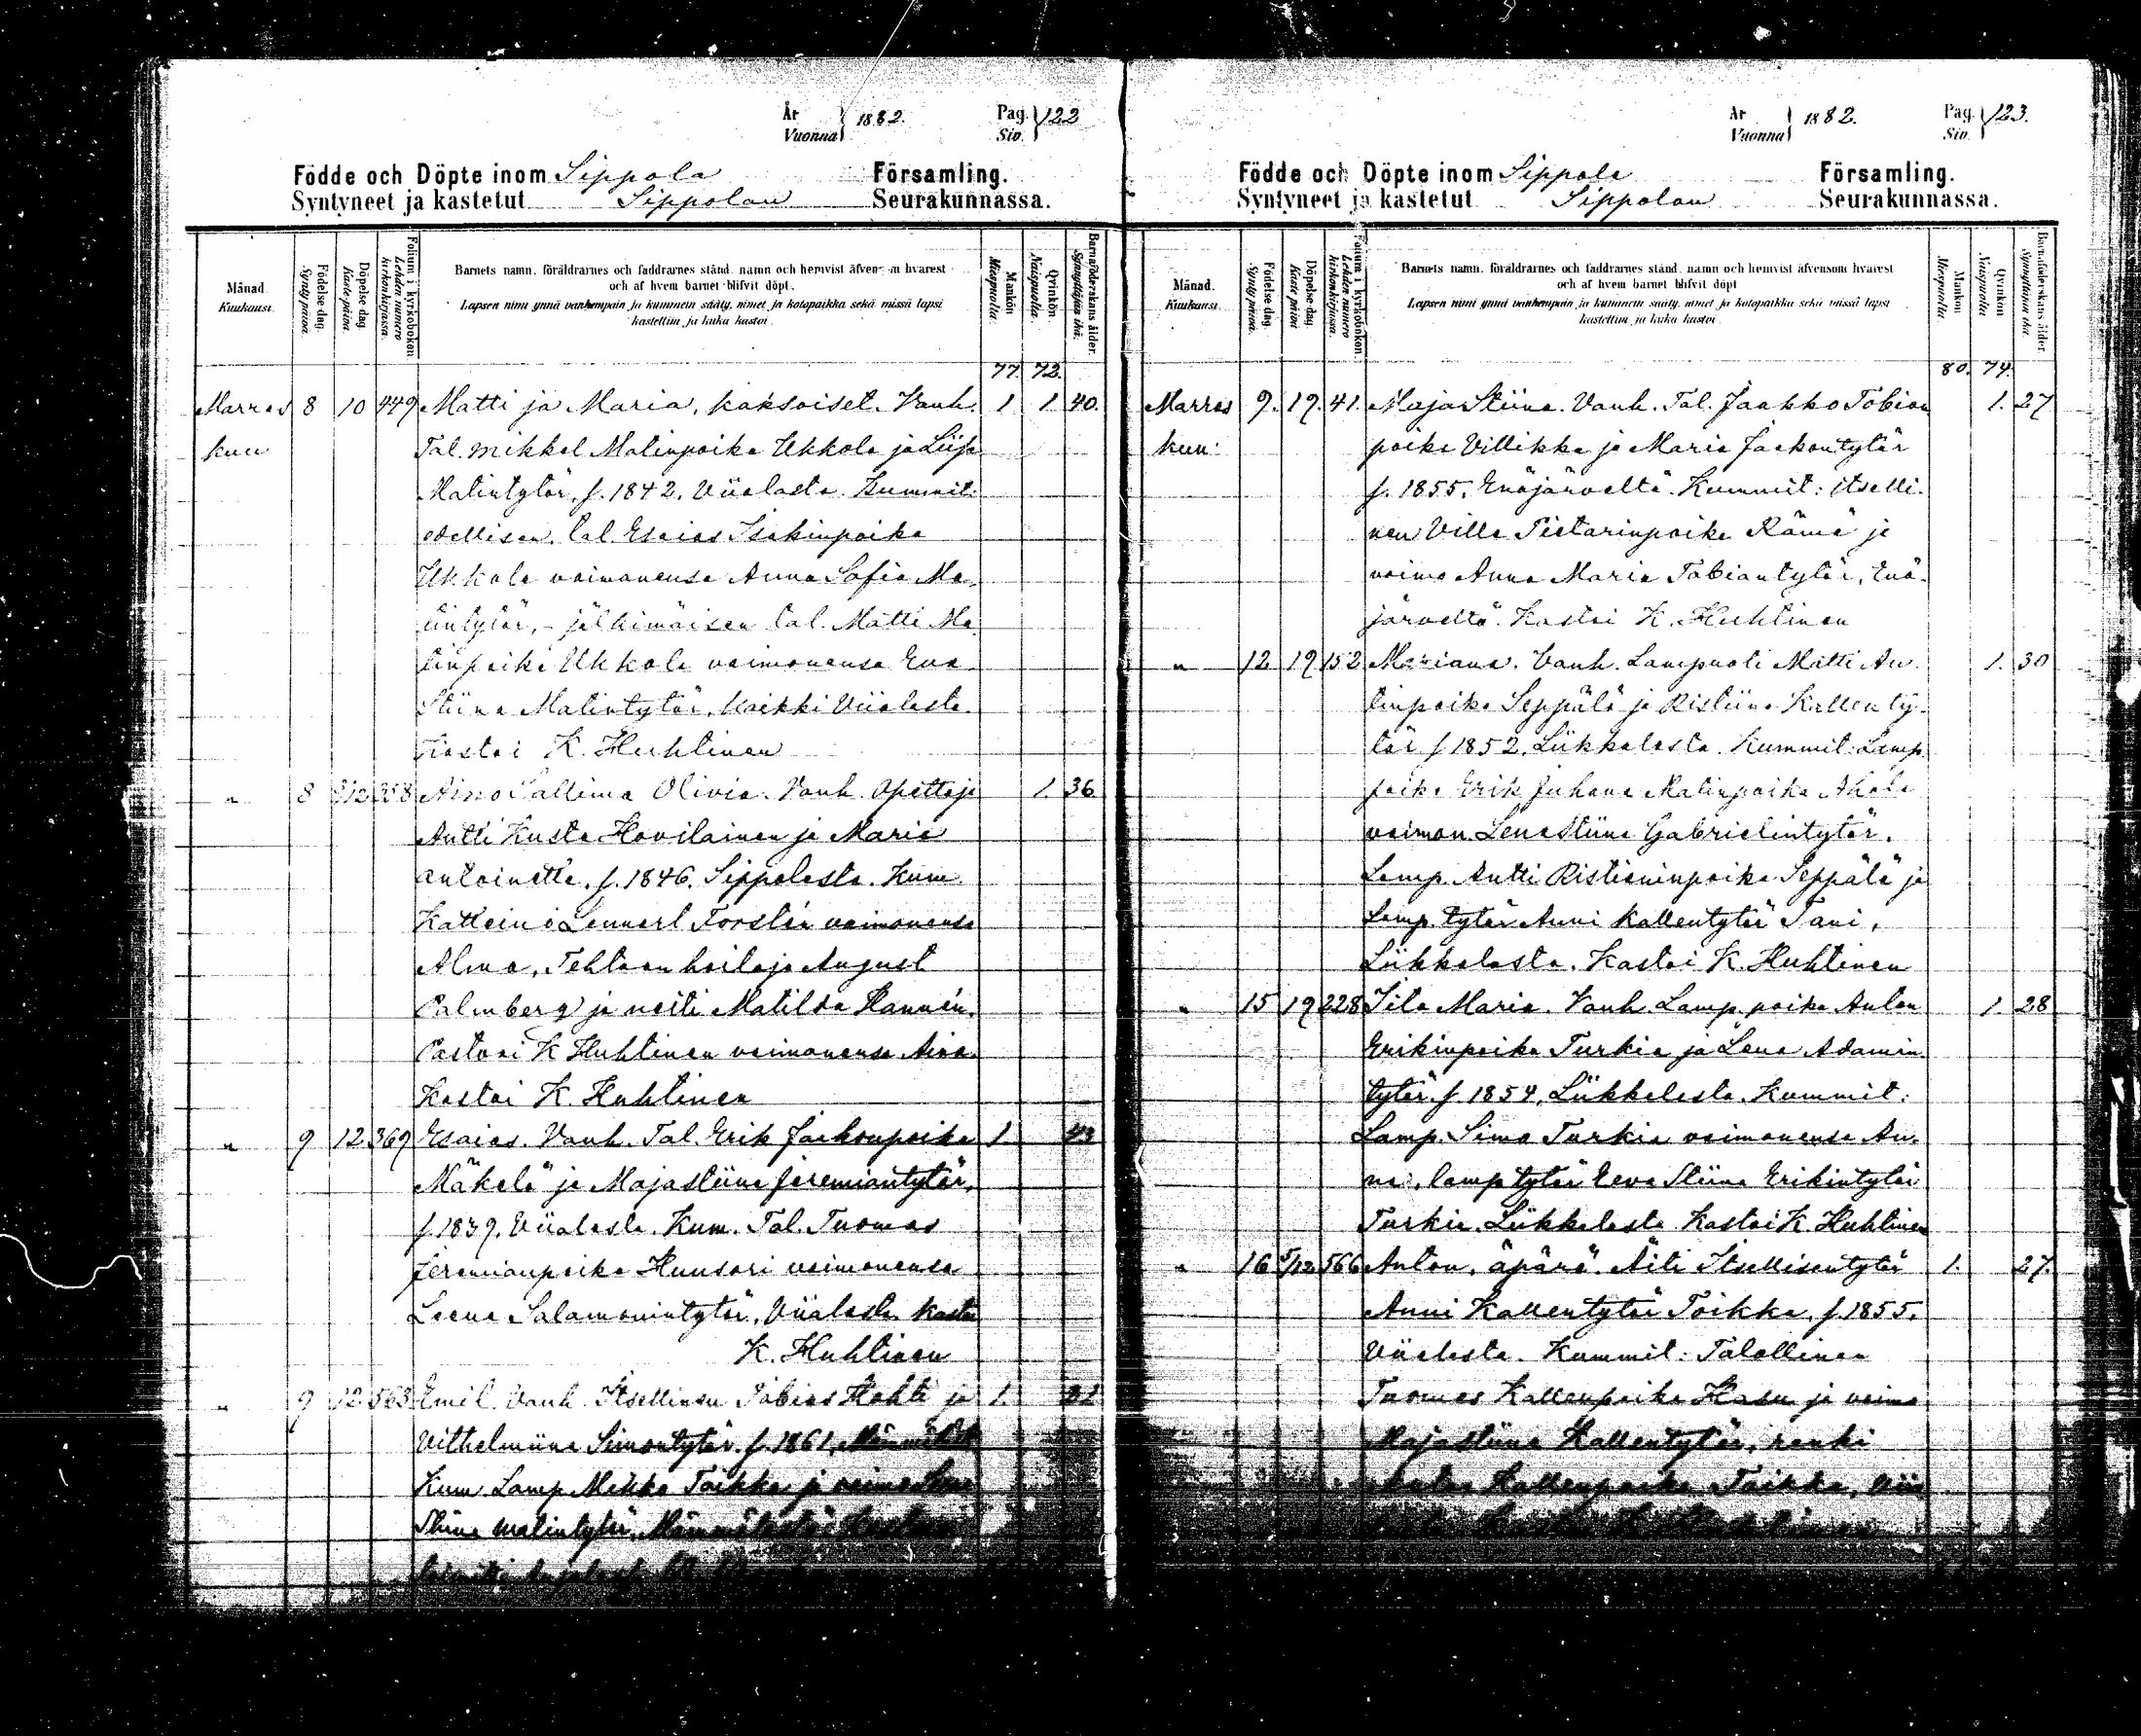 År Vuonna 1882. Pag. Siv. 122
Födde och Döpte inom Sippola Församling.
Syntyneet ja kastetut Sippolan Seurakunnassa.
Månad. Kuukausi.
Födelse dag. Synty päivä.
Döpelse dag. Kaste päivä.
Folium i kyrkoboken. Lehden numero kirkonkirjassa.
Barnets namn, föräldrarnes och faddrarnes stånd, namn och hemvist äfvensom hvarest
och af hvem barnet blifvit döpt.
Lapsen nimi ynnä vanhempain ja kummein sääty, nimet ja kotopaikka sekä missä lapsi
kastettiin ja kuka kastoi.
Mankön. Miespuolia.
Qvinkön. Naispuolia.
Barnaföderskans ålder. Synnyttäjän ikä.
77. 72.
Marras 8 10 449 Matti ja Maria, kaksoiset. Vanh. 1 1 40.
kuu Tal. Mikkel Matinpoika Ukkola ja Liisa
Matintytär, s. 1842. Viialasta. Kummit:
edellisen, tal. Esaias Isakinpoika
Ukkola vaimonensa Anna Sofia Ma-
tintytär, - jälkimäisen tal. Matti Ma
tinpoika Ukkola vaimonensa Eva
Stiina Matintytär, kaikki Viialasta.
Kastoi K. Huhtinen
" 8 358 Aino Olivia. Vanh. Opettaja 1. 36
Antti Kusta Hovilainen ja Maria
Antoinette, s. 1846. Sippolasta. Kum.
Lennart Forstén vaimonensa
Alma, Tehtaan hoitaja August
Palmberg ja neiti Matilda Hannén.
Pastori K Huhtinen vaimonensa Aina.
Kastoi K. Huhtinen
" 9 12 369 Esaias. Vanh. Tal. Erik Jaakonpoika 1 43
Mäkelä ja Majastiina Jeremiantytär,
s. 1839. Viialasta. Kum. Tal. Tuomas
Jeremianpoika Huusari vaimonensa
Leena Salamonintytär, Viialasta. Kastoi
K. Huhtinen
" 9 12 563 Emil. Vanh. Itsellinen Tobias Hahti ja 1. 21
Vilhelmiina Simontytär s. 1861,
Kum Lamp. Mikko Toikka ja vaimo
Stiina Matintytär,
År Vuonna 1882. Pag. Siv. 123.
Födde och Döpte inom Sippola Församling.
Syntyneet ja kastetut Sippolan Seurakunnassa.
Månad. Kuukausi.
Födelse dag. Synty päivä.
Döpelse dag. Kaste päivä.
Folium i kyrkoboken. Lehden numero kirkonkirjassa.
Barnets namn, föräldrarnes och faddrarnes stånd, namn och hemvist äfvensom hvarest
och af hvem barnet blifvit döpt
Lapsen nimi ynnä vanhempain ja kummein sääty, nimet ja kotopaikka sekä missä lapsi
kastettiin ja kuka kastoi.
Mankön. Miespuolia.
Qvinkön. Naispuolia.
Barnaföderskans ålder. Synnyttäjän ikä.
80. 74.
Marras 9. 19. 41. Maja Stiina. Vanh. Tal. Jaakko Tobian 1. 27
kuu: poika Villikka ja Maria Jaakontytär
s. 1855, Enäjärveltä. Kummit: itselli-
nen Ville Pietarinpoika Rämä ja
vaimo Anna Maria Tobiantytär, Enä-
järveltä. Kastoi K. Huhtinen
" 12 19 152 Mariana. Vanh. Lampuoti Matti An- 1. 30
tinpoika Seppälä ja Ristiina Kallenty-
tär s 1852, Liikkalasta. Kummit: Lamp.
poika Erik Juhana Matinpoika Ahola
vaimon. Lena Stiina Gabrielintytär.
Lamp. Antti Ristianinpoika Seppälä ja
Lamp. tytär Anni Kallentytär Tani,
Liikkalasta. Kastoi K. Huhtinen
" 15 19 228 Iita Maria. Vanh. Lamp. poika Anton 1. 28
Erikinpoika Turkia ja Lena Adamin-
tytär s. 1854, Liikkalasta. Kummit:
Lamp. Simo Turkia vaimonensa An-
na, lamp tytär Eeva Stiina Erikintytär
Turkia. Liikkalasta. Kastoi K. Huhtinen
" 16 5/12 566 Anton, äpärä. Äiti Itsellisentytär 1. 27.
Anni Kallentytär Toikka, s. 1855.
Viialasta. Kummit: Talollinen
Tuomas Kallenpoika Hasu ja vaimo
Majastiina Kallentytär, renki
Kallenpoika Toikka, Viia